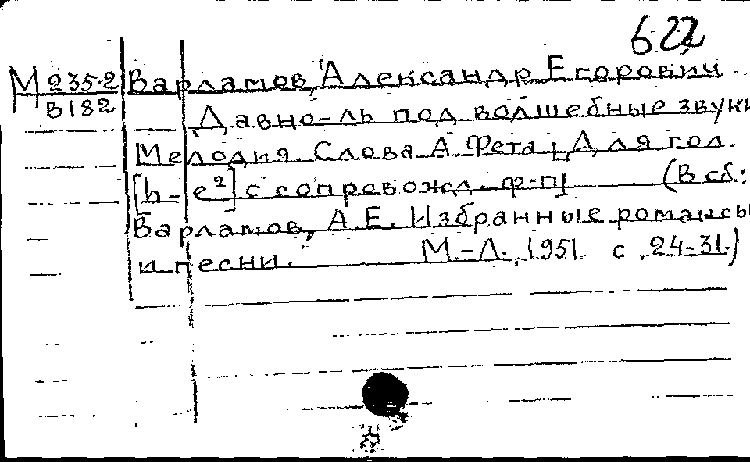 622
М 235-2 Варламов, Александр Егорович
В182
Давно-ль под волшебные звуки
Мелодия. Слова А. Фета. Для гол.
[h-e²] с сопровожд. ф-п (В сб.:
Варламов, А.Е. Избранные романсы
и песни. М.-Л., 1951. с. 24-31.)